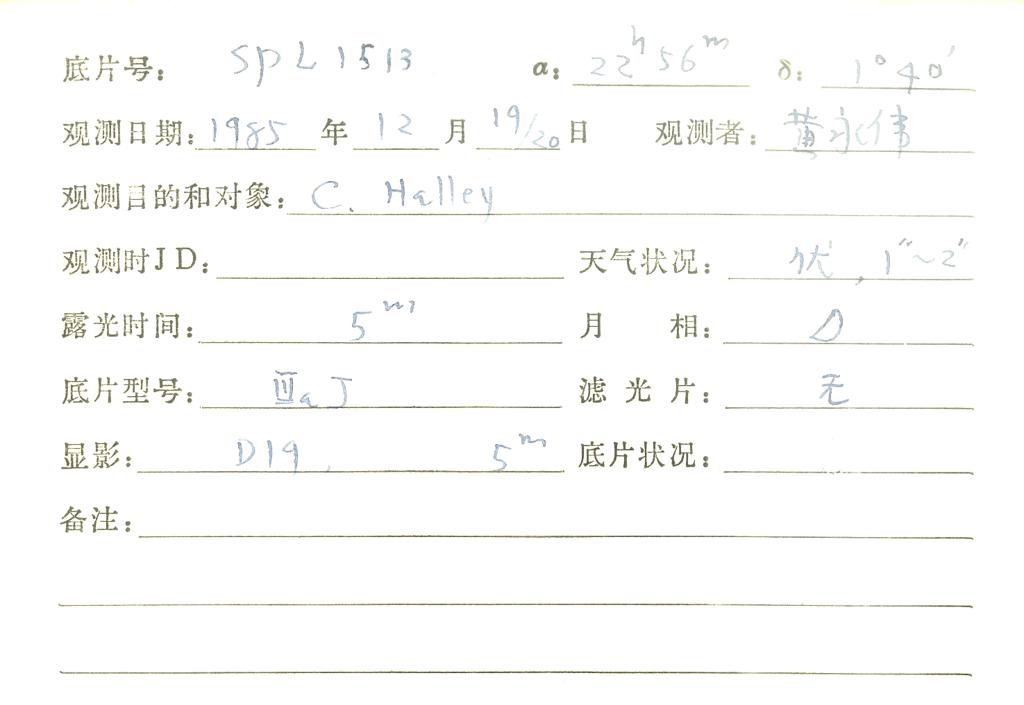 底片号: SPL 1513 α: 22ʰ 56ᵐ δ: 1° 40′
观测日期: 1985 年 12 月 19/20 日 观测者: 黄永伟
观测目的和对象: C. Halley
观测时JD: 天气状况: 优, 1″~2″
露光时间: 5ᵐ 月相:
底片型号: ⅢaJ 滤光片: 无
显影: D19, 5ᵐ 底片状况:
备注: